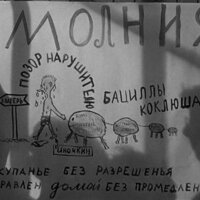 МОЛНИЯ
ПОЗОР НАРУШИТЕЛЮ
БАЦИЛЛЫ
КОКЛЮША
ИНОЧКИН
КУПАНЬЕ БЕЗ РАЗРЕШЕНЬЯ
РАВЛЕН домой БЕЗ ПРОМЕДЛЕН